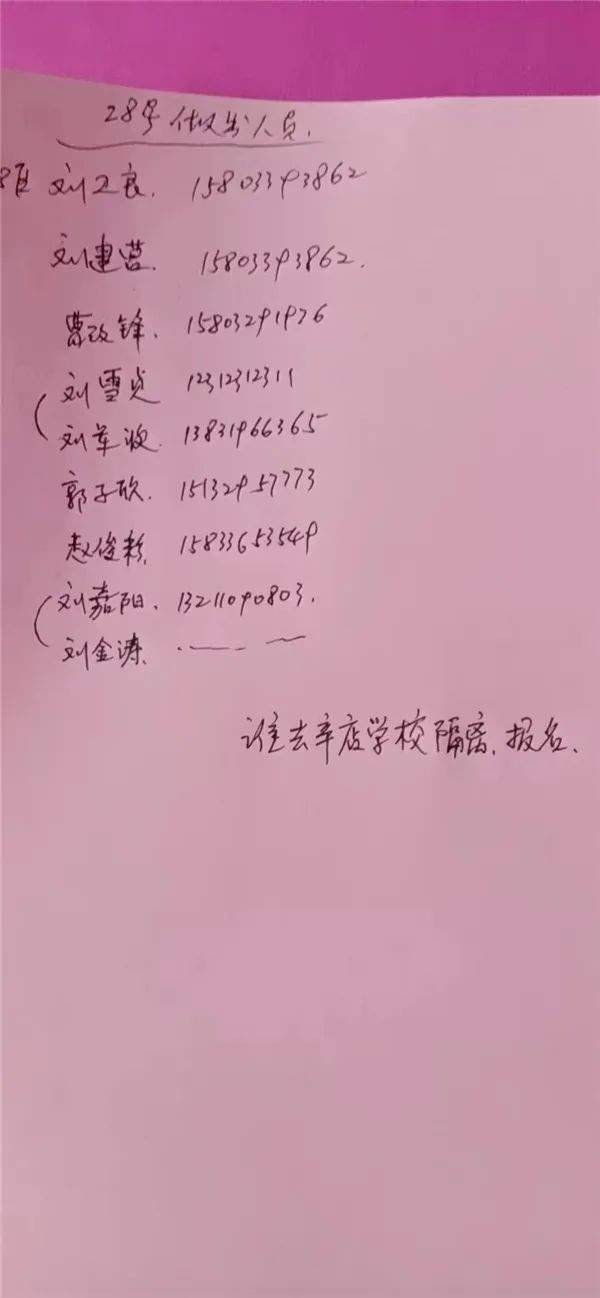 28号做出人员.
刘卫良. 15803393862
刘建营. 15803393862.
曹改锋. 15803291976
刘雪贞 12312312311
刘军波. 13831966365
郭子欣. 15132957773
赵俊彩 15833653549
刘嘉阳. 13211090803.
刘金涛.
谁去辛店学校隔离.报名.